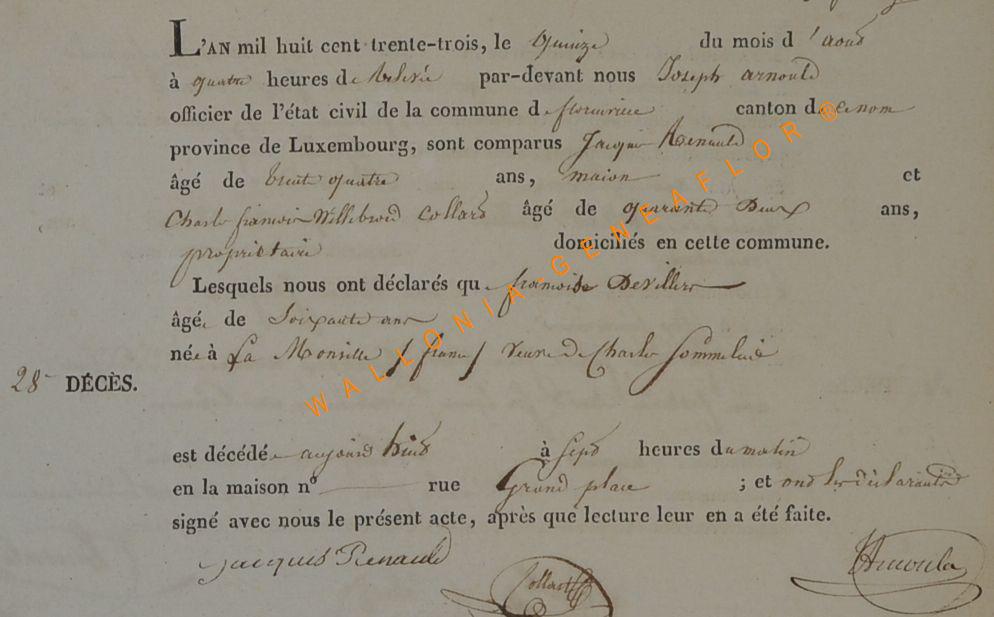 L'AN mil huit cent trente-trois, le Quinze du mois d'aout
à quatre heures de Relevée par-devant nous Joseph arnould
officier de l'état civil de la commune de florenville canton de ce nom
province de Luxembourg, sont comparus Jacques Renauld
âgé de trente quatre ans, maçon et
Charles françois Willebrord Collard âgé de quarante Deux ans,
propriétaire domiciliés en cette commune.
Lesquels nous ont déclarés que françoise Devillers
âgée de Soixante ans
née à La Monville / france / veuve de Charles
28 DÉCÈS.
est décédée aujourd'hui à Sept heures du matin
en la maison nº rue Grand place ; et ont les déclarants
signé avec nous le présent acte, après que lecture leur en a été faite.
Jacques Renauld Collard JArnould
WALLONIA-GENEAFLOR ®